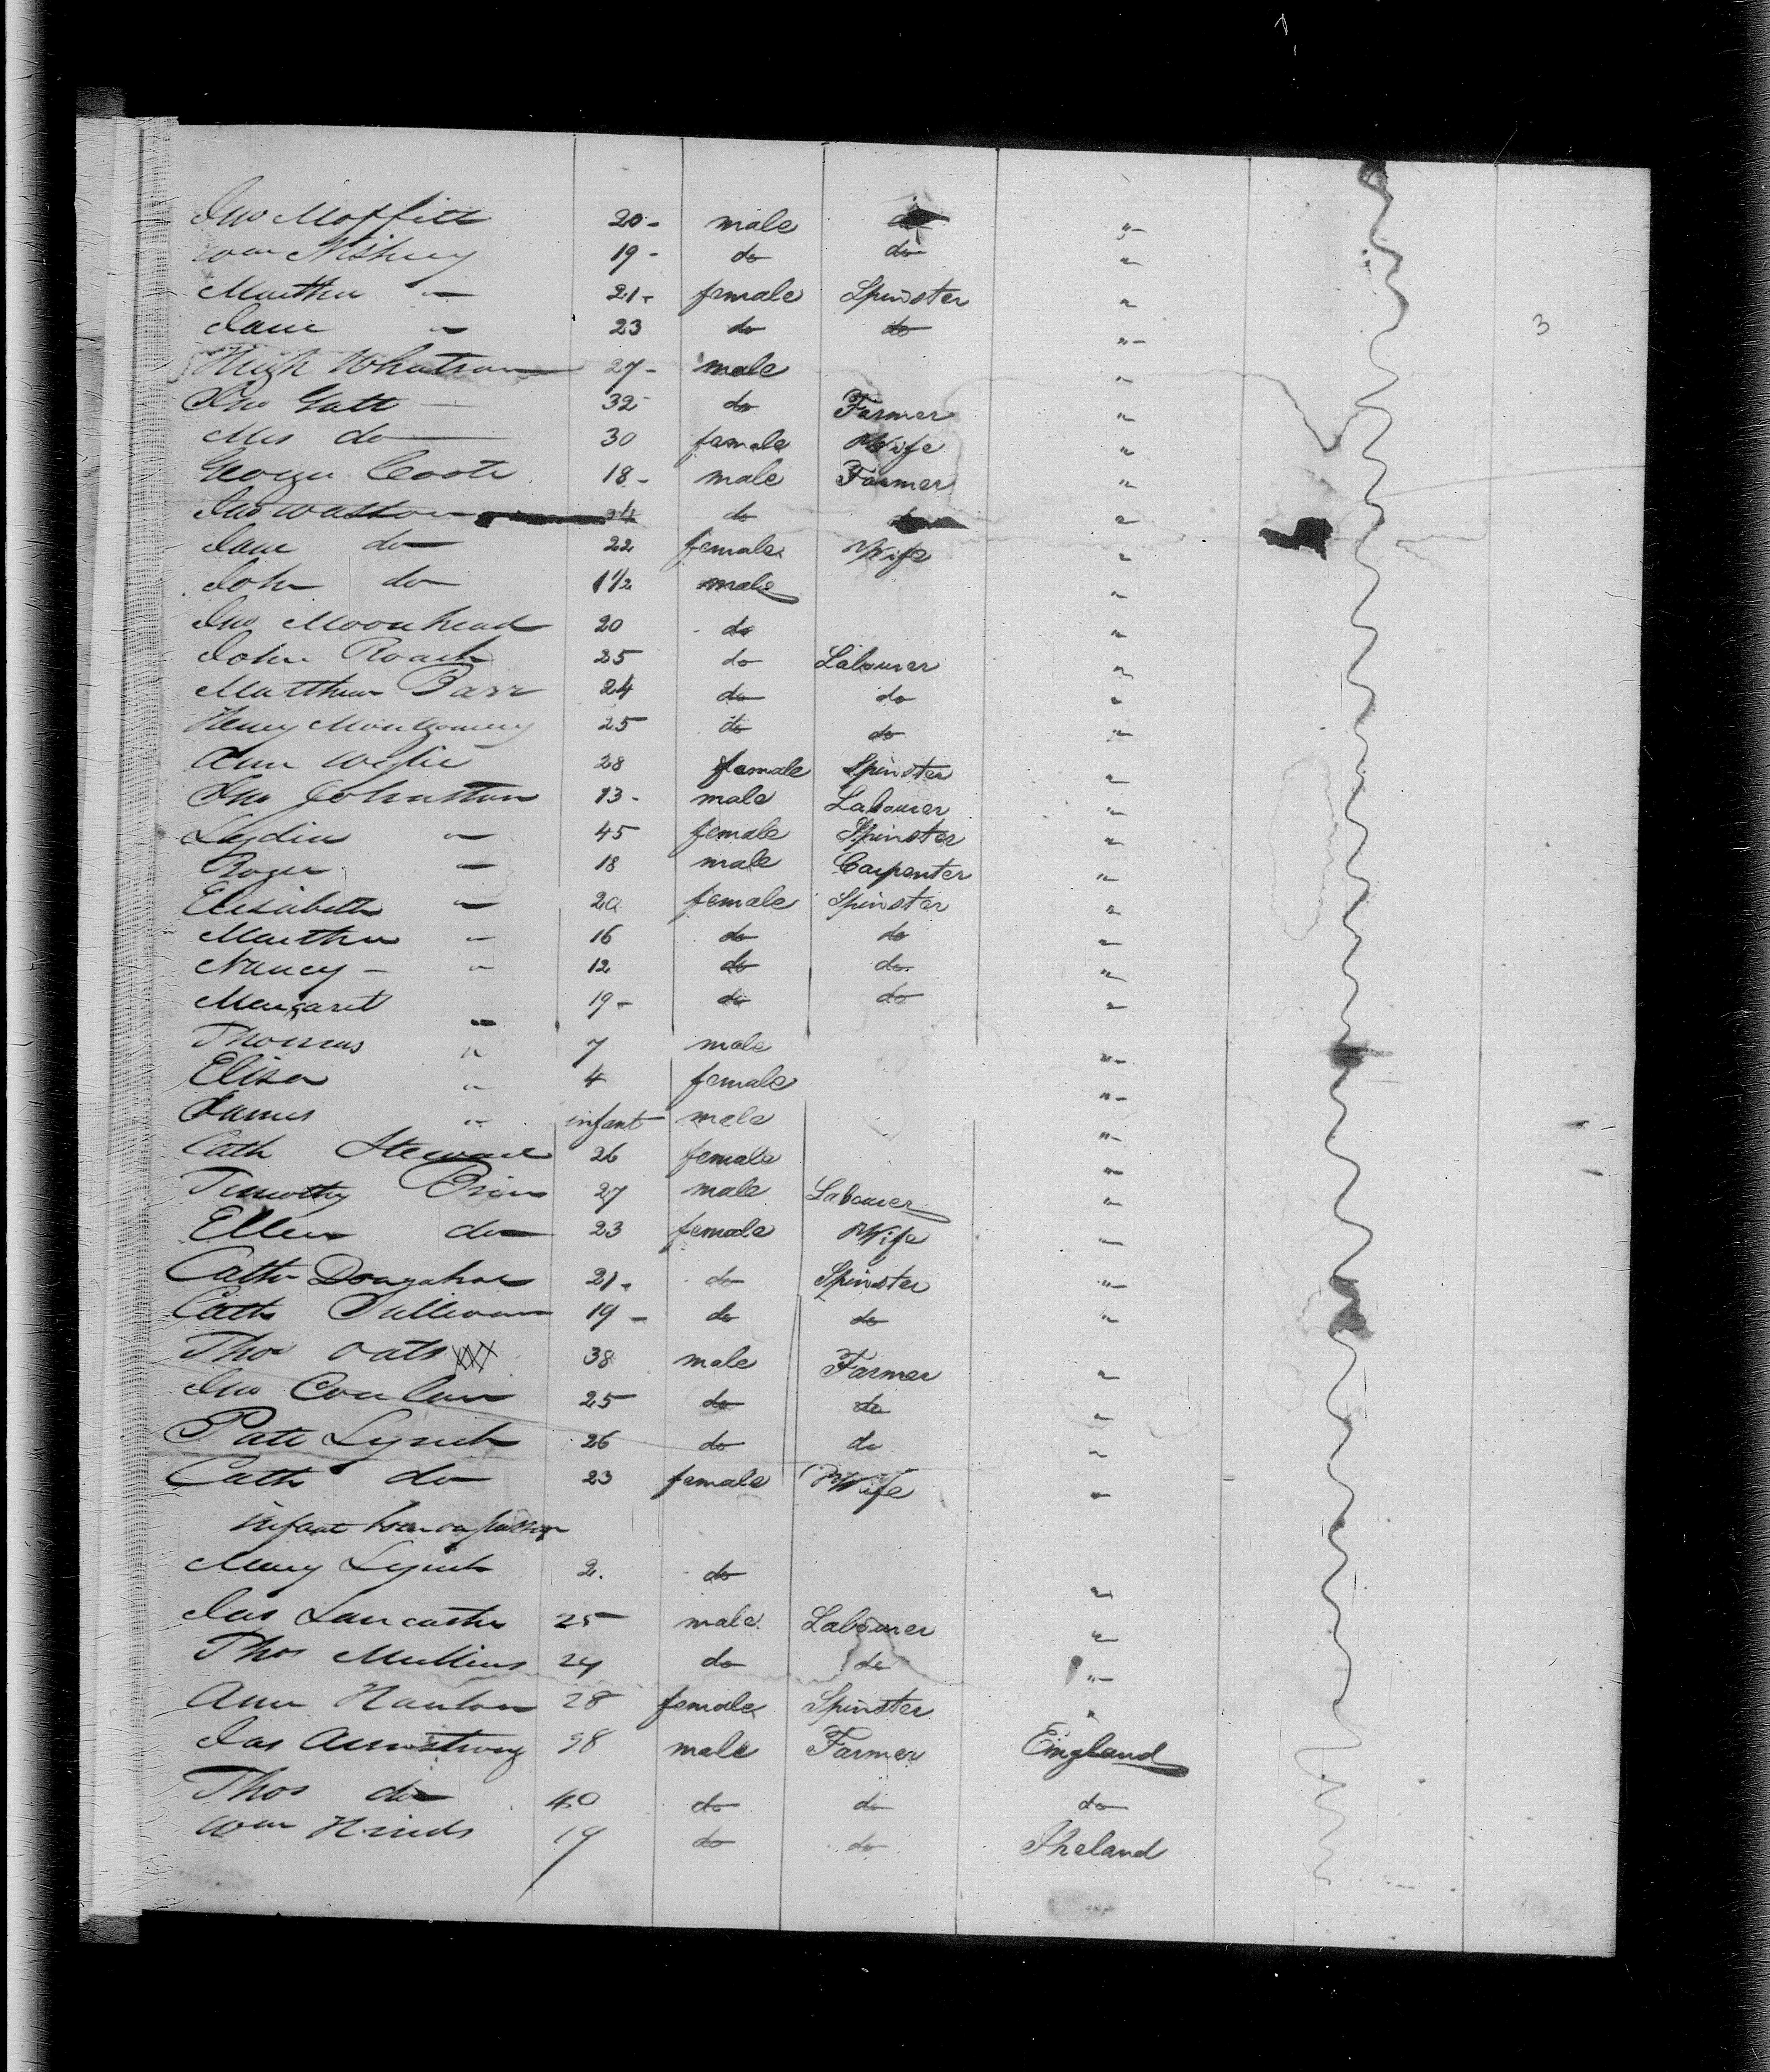 Jno Moffitt 20- male do "-
Wm 19- do do "
Martha " 21- female Spinster "
Jane " 23 do do "-
3
Hugh Whatson 27- male "
Jno Gatt 32- do Farmer "
Mrs do 30 female Wife "
George Coote 18- male Farmer "
Jno Waston 24 do do "
Jane do 22 female Wife "
John do 1½ male "
Jno Moorhead 20 do "
John Roach 25 do Labourer "
Matthew Parr 24 do do "
Henry Montgomery 25 do do "
Ann Wylie 28 female Spinster "
Jno Johnston 13- male Labourer "
Lydia " 45 female Spinster "
Roger " 18 male Carpenter "
Elisabeth " 20 female Spinster "
Martha " 16 do do "
Nancy - " 12 do do "
Margaret " 19- do do "
Thomas " 7 male "-
Elisa " 4 female "-
James " infant male "-
Cath Steward 26 female "-
Timothy Brien 27 male Labourer "
Ellen do 23 female Wife "
Cath Donaghoe 21- do Spinster "-
Cath Sullivan 19- do do "
Thos Oats 38 male Farmer "
Jno Conlan 25 do do "
Patt Lynch 26 do do "
Cath do 23 female Wife "
infant born on passage
Mary Lynch 2. do "
Jas Lancaster 25 male Labourer "
Thos Mullins 24 do do "-
Ann Hanlon 28 female Spinster "
Jas Armstrong 38 male Farmer England
Thos do 40 do do do
Wm Hinds 19 do do Ireland